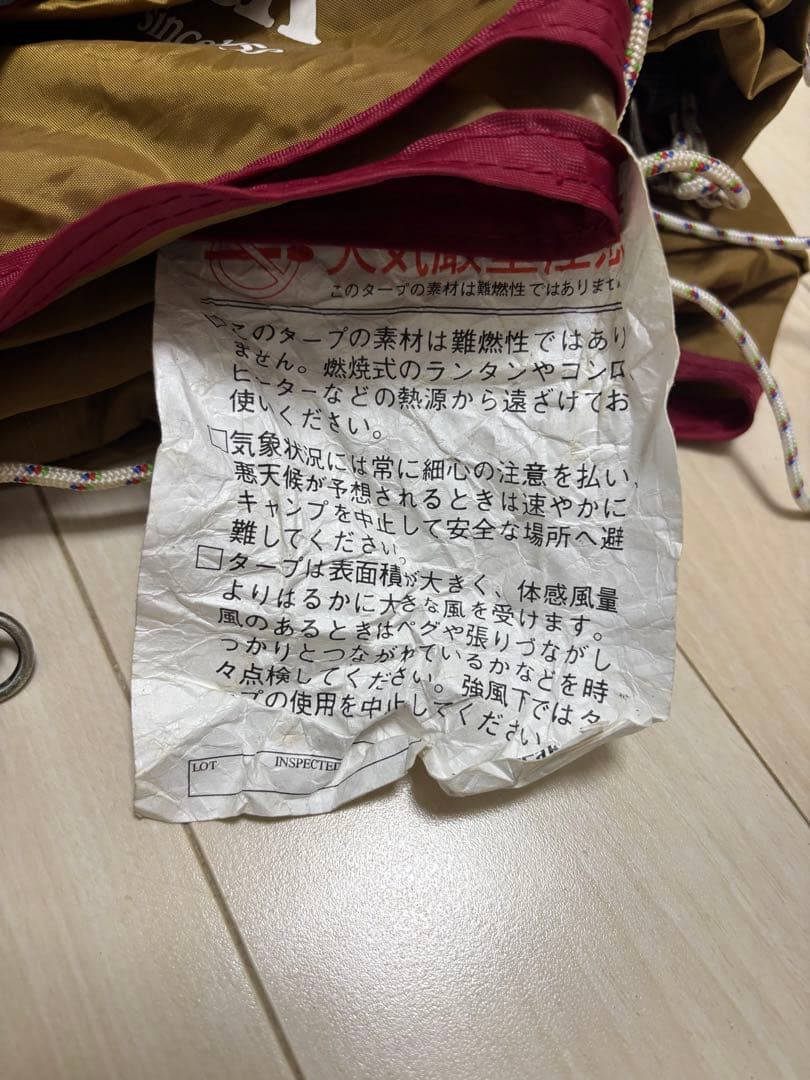 since
火気厳重注意
このタープの素材は難燃性ではありません
□このタープの素材は難燃性ではあり
ません。燃焼式のランタンやコンロ、
ヒーターなどの熱源から遠ざけてお
使いください。
□気象状況には常に細心の注意を払い、
悪天候が予想されるときは速やかに
キャンプを中止して安全な場所へ避
難してください。
□タープは表面積が大きく、体感風量
よりはるかに大きな風を受けます。
風のあるときはペグや張りづながし
っかりとつながれているかなどを時
々点検してください。強風下ではタ
ープの使用を中止してください
LOT INSPECTED